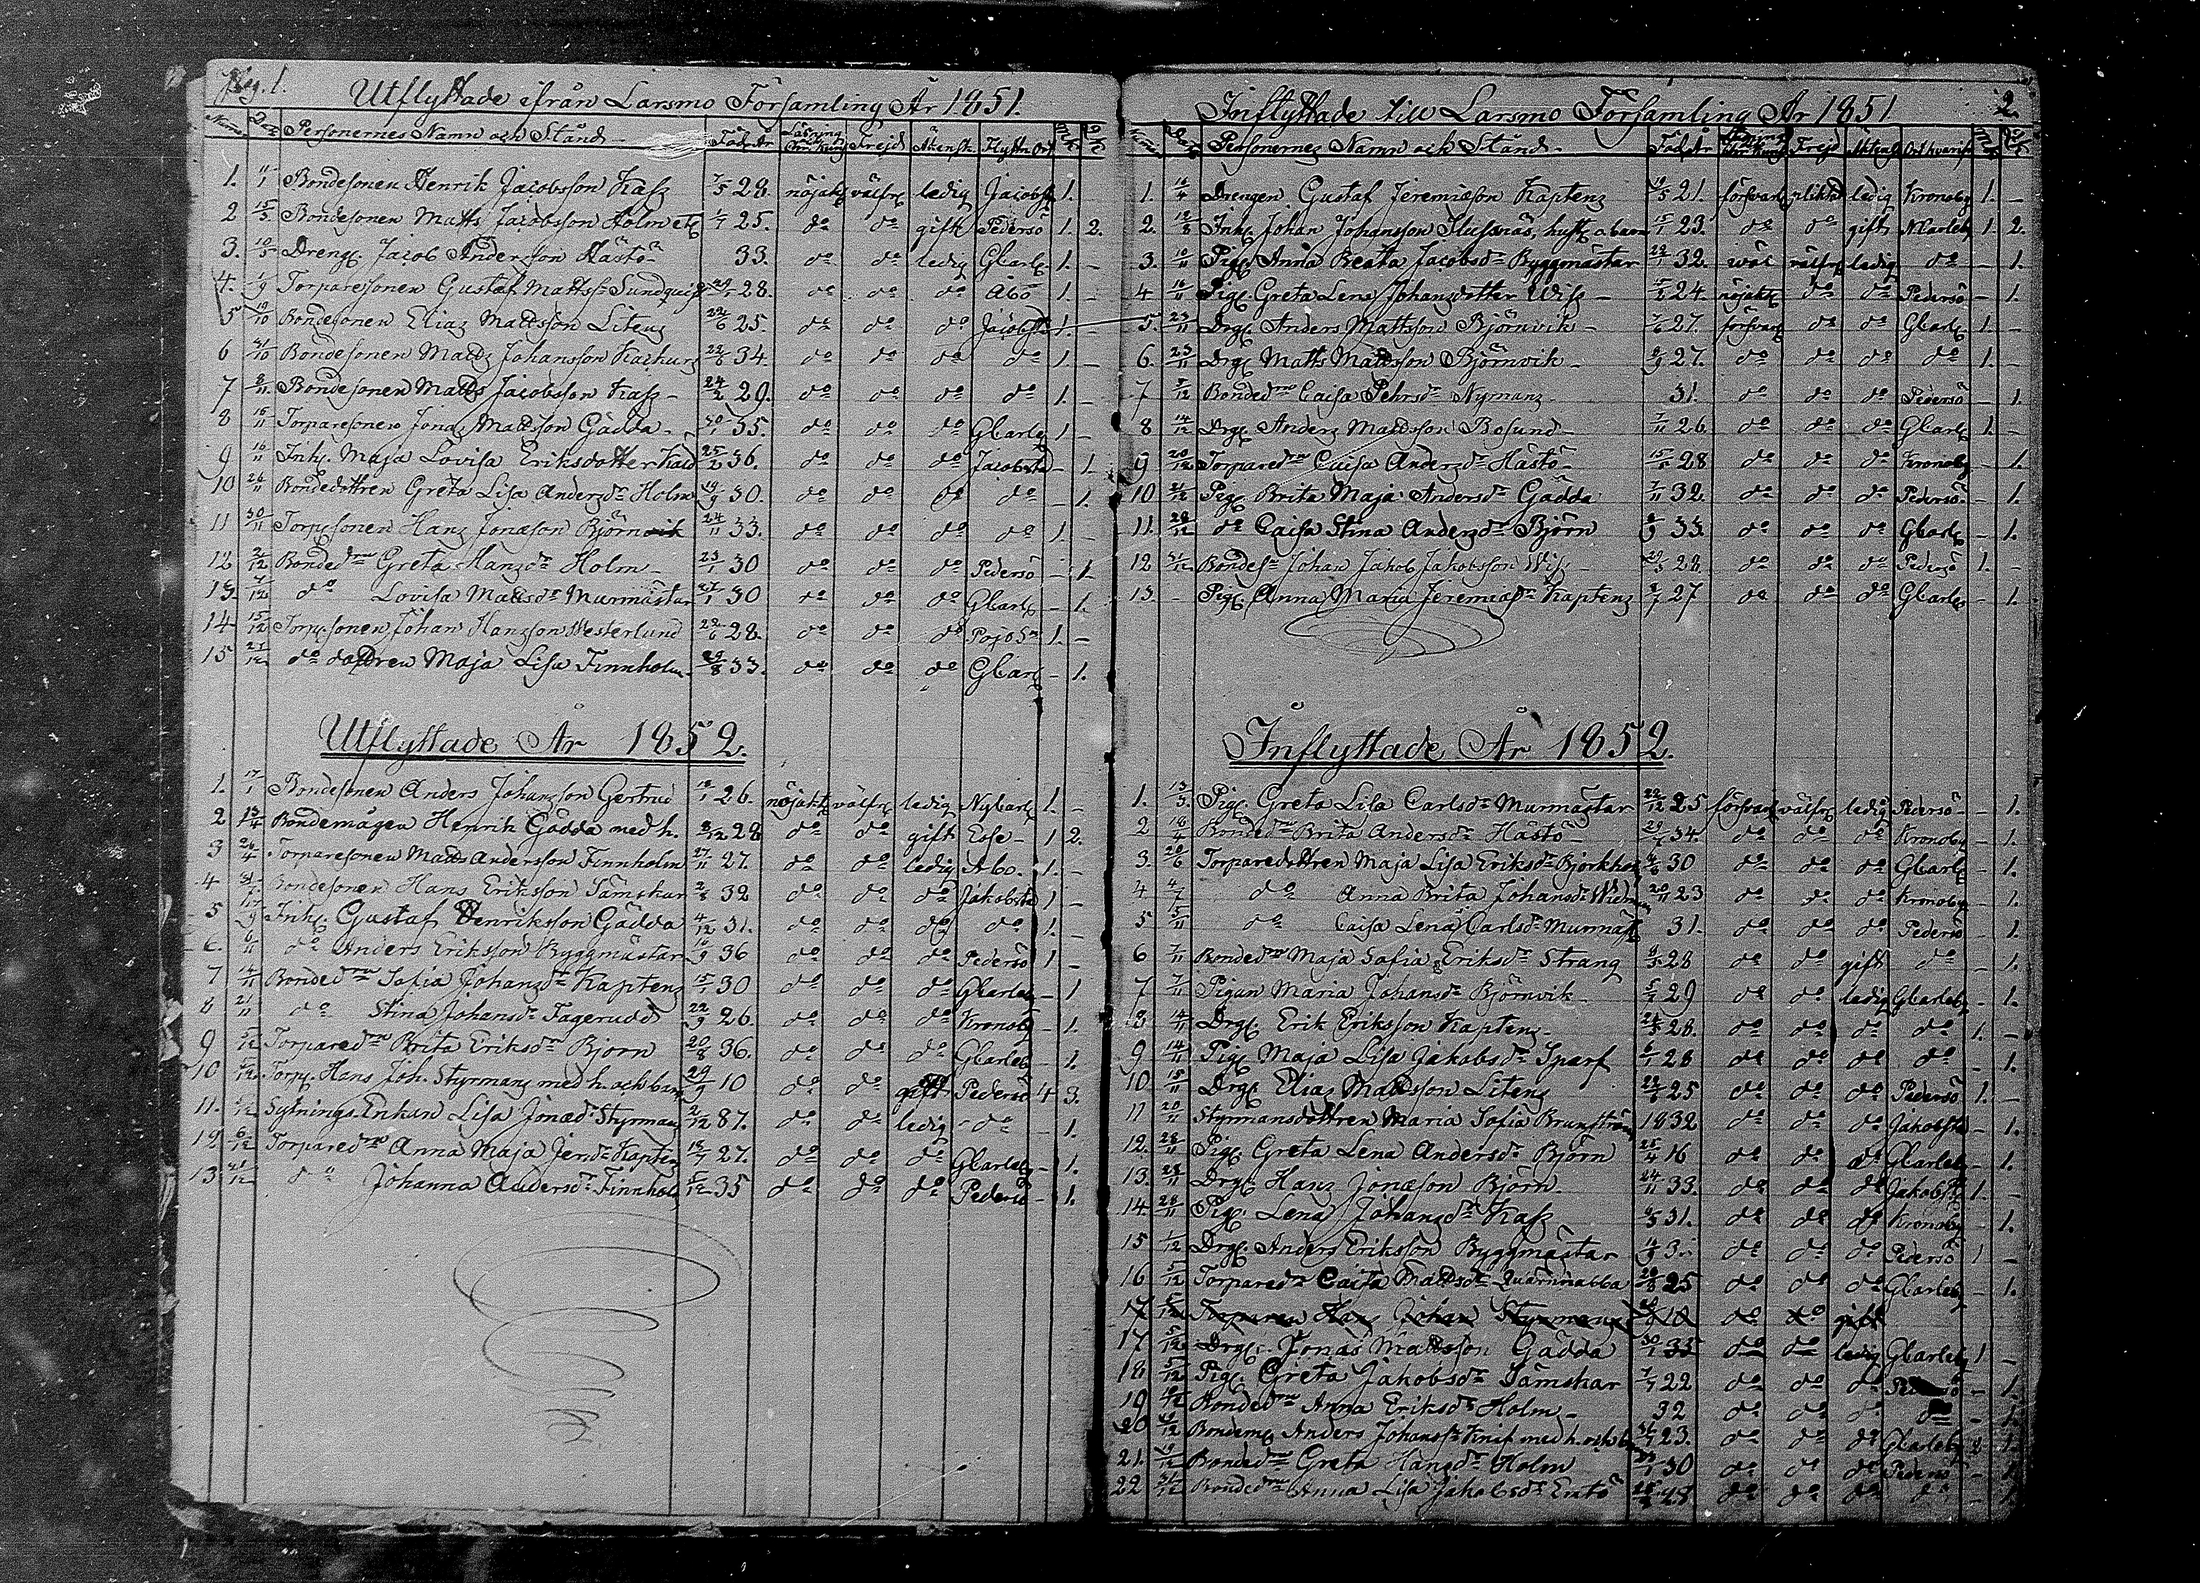 Pag. 1.
Utflyttade ifrån Larsmo Församling År 1851.
Personernes Namn och Stånd Föd. År Läsning Frejd Äktensk. Flyttn. Ort
1. 11/1 Bondesonen Henrik Jacobsson Kass 7/5 28. nöjakt. välfr. ledig Jacobst. 1.
2 15/3 Bondesonen Matts Jacobsson Holm etc 1/7 25. do do gift Pedersö 1. 2.
3. 10/5 Dreng. Jacob Andersson Hästö 33. do do ledig Gbarl. 1. –
4. 1/9 Torparesonen Gustaf Mattss. Sundquist 28. do do do Åbo 1. –
5 19/10 Bondesonen Elias Mattsson Litens 22/6 25. do do do Jacobst. 1. –
6 31/10 Bondesonen Matts Johansson 22/6 34. do do do do 1. –
7 8/11 Bondesonen Matts Jacobsson Kass – 24/2 29. do do do do 1. –
8 16/11 Torparesonen Jonas Mattsson Gädda – 30/1 35. do do do Gbarl. 1 –
9 16/11 Inh. Maja Lovisa Eriksdotter 25/2 36. do do do Jacobsta – 1.
10 26/11 Bondedottren Greta Lisa Andersdr Holm 19/9 30. do do do do – 1.
11 30/11 Torp.sonen Hans Jonasson Björnvik 24/11 33. do do do do 1. –
12 2/12 Bondedrn Greta Hansdr Holm – 23/1 30 do do do Pedersö – 1.
13. 4/12 do Lovisa Mattsdr Murmästar 27/1 30 do do do Gbarl. – 1.
14 15/12 Torp.sonen Johan Hansson Westerlund 29/6 28. do do do 1. –
15 27/12 do dottren Maja Lisa Finnholm 29/8 33. do do do Gbarl. – 1.
Utflyttade År 1852.
1. 17/1 Bondesonen Anders Johansson Gertrud 18/1 26. nöjakt. välfr. ledig Nybarl. 1. –
2 13/4 Bondemågen Henrik Gädda med h. 8/12 28 do do gift Esse – 1 2.
3 24/4 Torparesonen Matts Andersson Finnholm 27/11 27. do do ledig Åbo. 1. –
4 31/7 Bondesonen Hans Eriksson Sämskar 2/8 32 do do do Jakobsta 1 –
5 17/9 Inh. Gustaf Henriksson Gädda 4/12 31. do do do do 1. –
6. 6/11 do Anders Eriksson Byggmästar 16/9 36 do do do Pedersö 1 –
7 14/11 Bondedrn Sofia Johansdr Kaptens 15/1 30 do do do Gbarleb – 1
8 21/11 do Stina Johansdr Fagerudd 22/9 26. do do do Kronoby – 1.
9 5/12 Torparedrn Brita Eriksdr Björn 20/8 36. do do do Gbarleb – 1.
10 5/12 Torp. Hans Joh. Styrmans med h. och barn 29/9 10 do do gift Pedersö 4 3.
11. 5/12 Sytnings Enkan Lisa Jonæd. Styrmans 2/12 87. do do ledig do – 1.
12 6/12 Torparedrn Anna Maja Jerdr Kaptens 18/7 27. do do do Gbarleb – 1.
13 21/12 do Johanna Andersdr Finnholm 5/12 35 do do do Pedersö – 1.
2.
Inflyttade till Larsmo Församling År 1851
Personernes Namn och Stånd Föd. År Frejd Äktensk. Ort hvarifr.
1. 16/4 Drengen Gustaf Jeremiæson Kaptens 19/5 21. försvarl. ledig Kronoby 1. –
2. 12/8 Inh. Johan Johansson Slussnäs, hust. o barn 15/1 23. do do gift NCarleby 1. 2.
3. 10/11 Pig. Anna Beata Jacobsdr Byggmästar 22/1 32. wäl välfr. ledig do – 1.
4 16/11 Pig. Greta Lena Johansdotter Wiss – 15/2 24. nöjakt. do do Pedersö – 1.
5. 23/11 Drg. Anders Mattsson Björnvik – 7/6 27. försvarl. do do Gbarl. 1. –
6. 23/11 Drg. Matts Mattsson Björnvik – 9/9 27. do do do do 1. –
7 3/12 Bondedrn Caisa Pehrsdr Nymans 31. do do do Pedersö – 1.
8 14/12 Drg. Anders Mattsson Bosund – 7/11 26 do do do Gbarl. 1. –
9 20/12 Torparedrn Caisa Andersdr Hästö – 15/5 28 do do do Kronoby – 1.
10 21/12 Pig. Brita Maja Andersdr Gädda 7/11 32. do do do Pedersö – 1.
11. 28/12 do Caisa Stina Andersdr Björn 8/9 33. do do do Gbarl. – 1.
12 31/12 Bondesn Johan Jakob Jakobsson Wiss – 29/5 28. do do do Pedersö 1. –
13. – Pig. Anna Maria Jeremiædr Kaptens 8/7 27 do do do Gbarleb – 1.
Inflyttade År 1852.
1. 13/3 Pig. Greta Lisa Carlsdr Murmästar 22/12 25 försvarl. välfr. ledig Pedersö – 1.
2 18/4 Bondedrn Brita Andersdr Hästö – 29/7 34. do do do Kronoby – 1.
3. 20/6 Torparedottren Maja Lisa Eriksdr Björkhol. 9/6 30 do do do Gbarl. – 1.
4 4/7 do Anna Brita Johansdr 20/11 23 do do do Kronoby – 1.
5 5/11 do Caisa Lena Carlsdr Murmäst. 31. do do do Pedersö – 1.
6 7/11 Bondedrn Maja Sofia Eriksdr Strang 8/5 28 do do gift do – 1.
7 7/11 Pigan Maria Johansdr Björnvik – 5/2 29 do do ledig Gbarleb – 1.
8 14/11 Drg. Erik Eriksson Kaptens – 24/5 28. do do do do 1. –
9 14/11 Pig. Maja Lisa Jakobsdr Sparf 6/1 28 do do do do – 1.
10 15/11 Drg. Elias Mattsson Litens 22/6 25 do do do Pedersö 1. –
11 20/11 Styrmansdottren Maria Sofia Brunström 1832 do do do Jakobsta – 1.
12. 28/11 Pig. Greta Lena Andersdr Björn 25/4 16 do do do Gbarleb – 1.
13. 28/11 Drg. Hans Jonæson Björn. 24/11 33. do do do Jakobst. 1. –
14. 28/11 Pig. Lena Johansdr Kass 9/5 31. do do do Kronoby – 1.
15 1/12 Drg. Anders Eriksson Byggmästar 16/9 3. do do do Pedersö 1 –
16 5/12 Torparedr Caisa Mattsdr Quarnnabba 20/8 25 do do do Gbarleb – 1.
17 5/12 Torparen Hans Johan Styrmans 29/9 10 do do gift
17 5/12 Drg. Jonas Mattsson Gädda 30/1 35 do do ledig Gbarleb 1 –
18 5/12 Pig. Greta Jakobsdr Sämskar 7/7 22 do do do Pedersö – 1.
19 Bondedrn Anna Eriksdr Holm – 32 do do do do – 1.
20 Bondem. Anders Johanss. Knif med h. och barn 23. do do do Gbarleb
21. 19/12 Bondedrn Greta Hansdr Holm 23/1 30 do do do Pedersö – 1
22 31/12 Bondedrn Anna Lisa Jakobsdr Entö 28 do do do do – 1